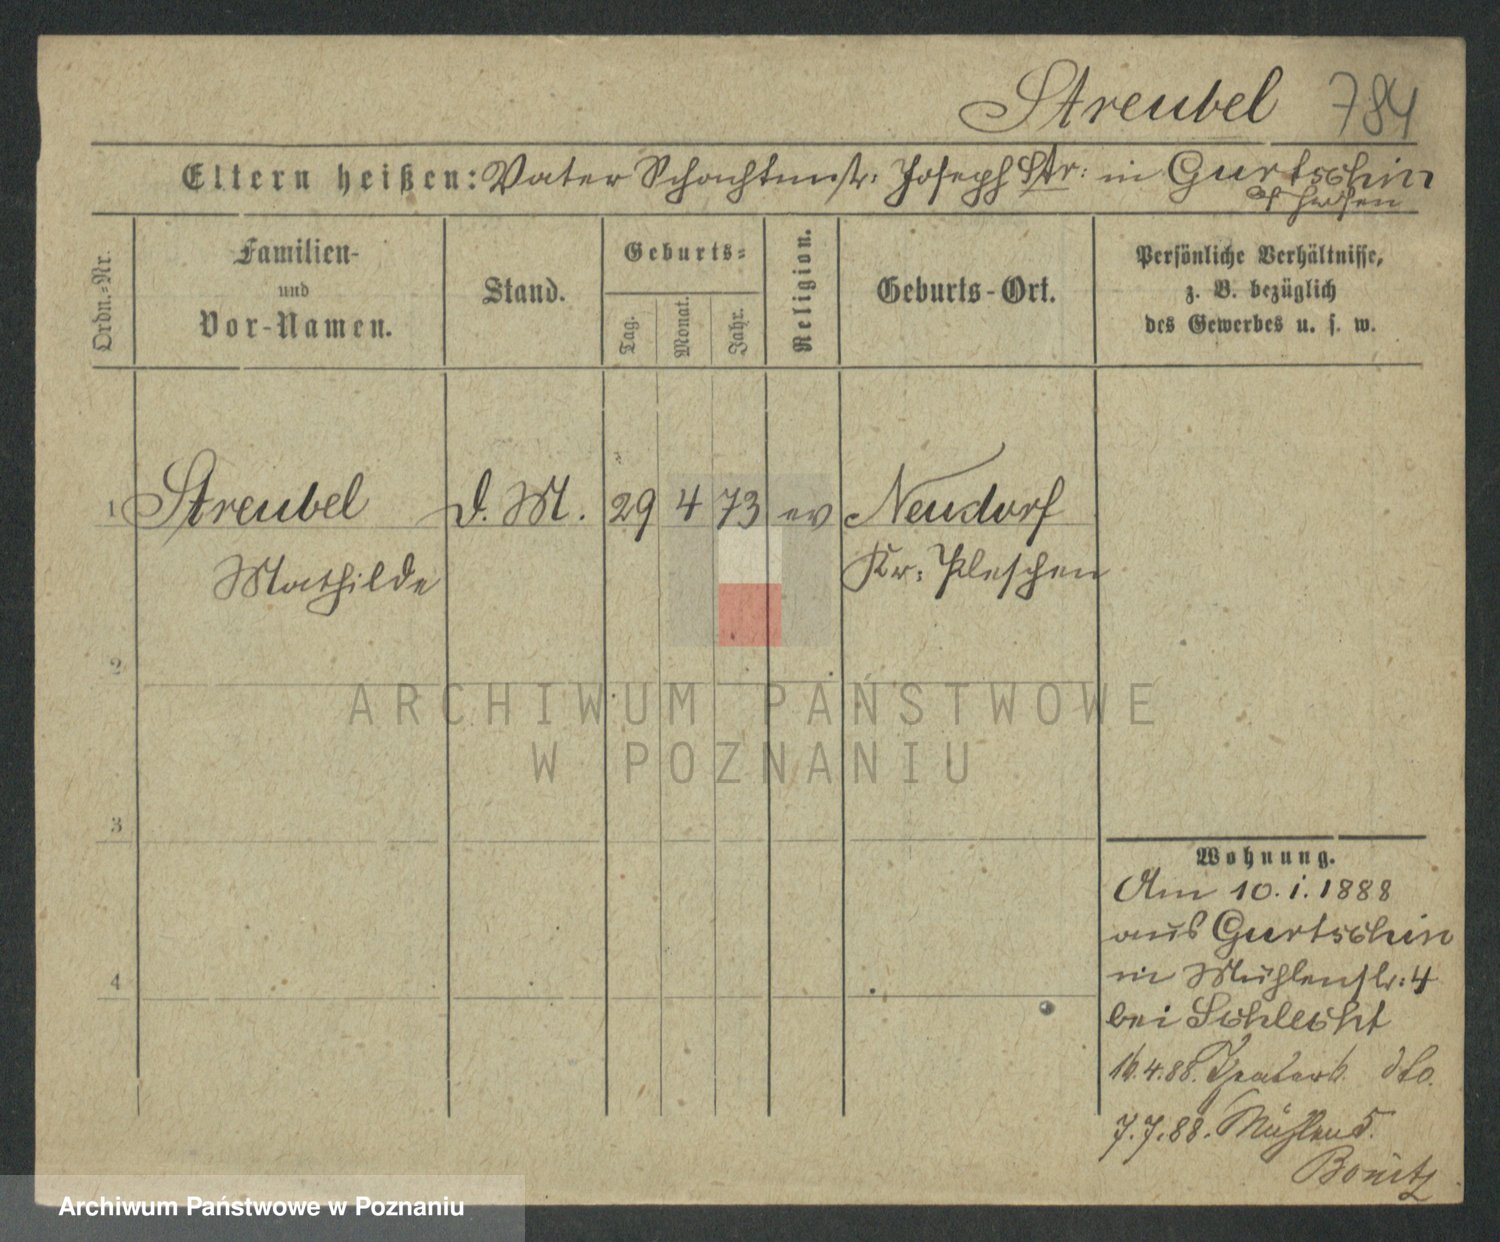 Streubel 784
Eltern heißen: Vater Schachtmstr: Joseph Str: in Gurtschin
Ordn.-Nr.
Familien-
und
Vor-Namen.
Stand.
Geburts-
Tag.
Monat.
Jahr.
Religion.
Geburts-Ort.
Persönliche Verhältnisse,
z. B. bezüglich
des Gewerbes u. s. w.
1 Streubel d. M. 29 4 73 ev Neudorf
Mathilde Kr: Pleschen
2
ARCHIWUM PAŃSTWOWE
W POZNANIU
3
Wohnung.
Am 10. i. 1888
aus Gurtschin
in Mühlenstr: 4
bei Schlecht
4
16.4.88. dto.
7.7.88. Mühlen 5.
Bonitz
Archiwum Państwowe w Poznaniu